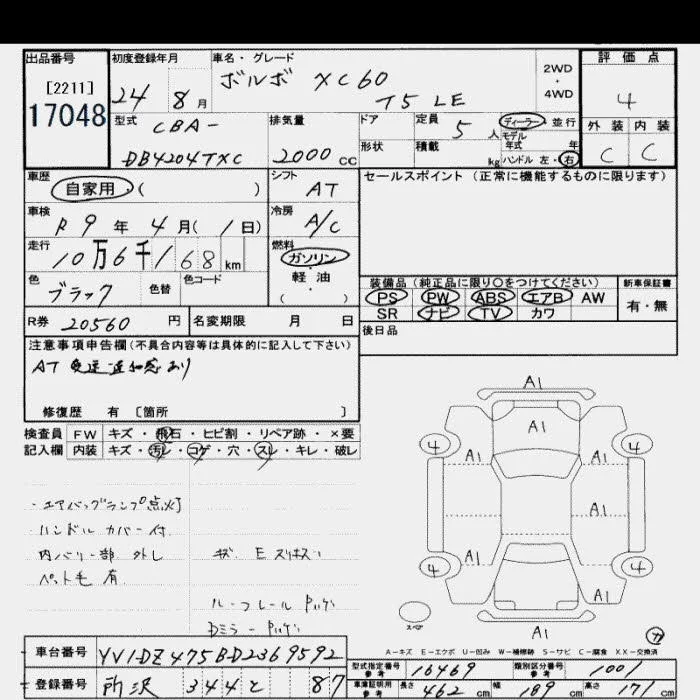 出品番号
[2211]
17048
初度登録年月
24 8月
車名・グレード
ボルボ XC60
T5 LE
2WD
・
4WD
評価点
4
外装 内装
C C
型式
CBA-
DB4204TXC
排気量
2000 CC
ドア
定員
5人
ディーラー・並行
モデル
年式 年
形状
積載
kg
ハンドル 左・右
車歴
自家用 ( )
シフト
AT
セールスポイント(正常に機能するものに限ります)
車検
R9年 4月( 1日)
冷房
A/C
走行
10万6千168 km
燃料
ガソリン
軽・油
( )
色
ブラック
色替
色コード
装備品(純正品に限り○をつけてください)
PS PW ABS エアB AW
SR ナビ TV カワ
新車保証書
有・無
R券 20560 円
名変期限 月 日
後日品
注意事項申告欄(不具合内容等は具体的に記入して下さい)
AT 変速違和感あり
修復歴 有 [箇所 ]
検査員 FW キズ・飛石・ヒビ割・リペア跡・×要
記入欄 内装 キズ・汚レ・コゲ・穴・スレ・キレ・破レ
・エアバッグランプ点灯
ハンドルカバー付
内バリ一部 外し
ペット毛 有
ルーフレール
Dミラー
A1
A1
4 4
A1 A1
A1
A1
4 4
A1
A1
スペア
A-キズ E-エクボ U-凹み W-補修跡 S-サビ C-腐食 XX-交換済
車台番号 YV1DZ475BD2369592
登録番号 所沢 344 と 87
型式指定番号
参考
16469
類別区分番号
参考
1001
車庫証明用
参考
長さ 462 cm 幅 189 cm 高さ 171 cm